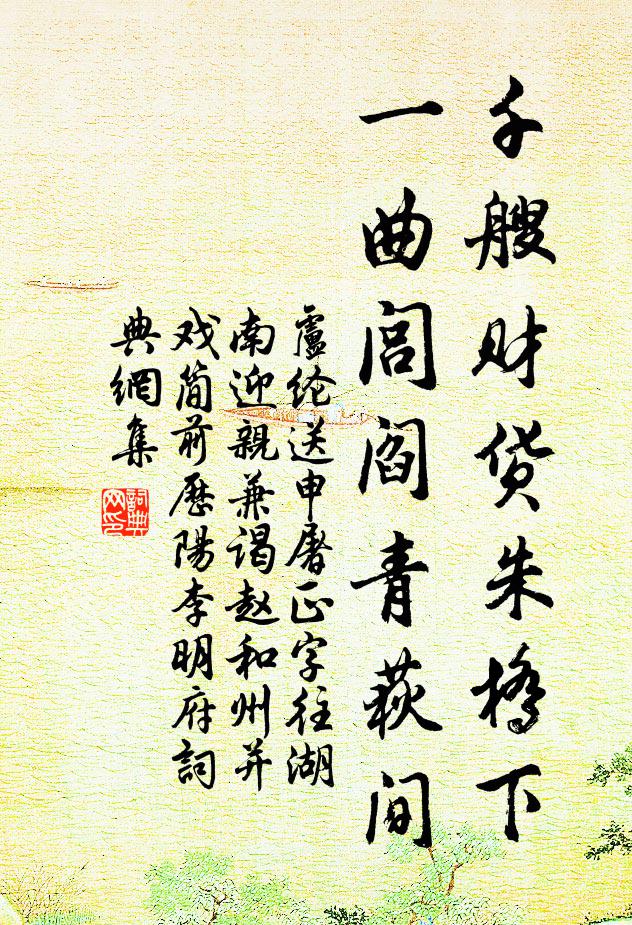 千艘财货朱橋下
一曲闾阎青荻间
盧纶送申屠正字往湖
南迎親兼谒赵和州并
戏简前歷陽李明府詞
典網集
詞典网印